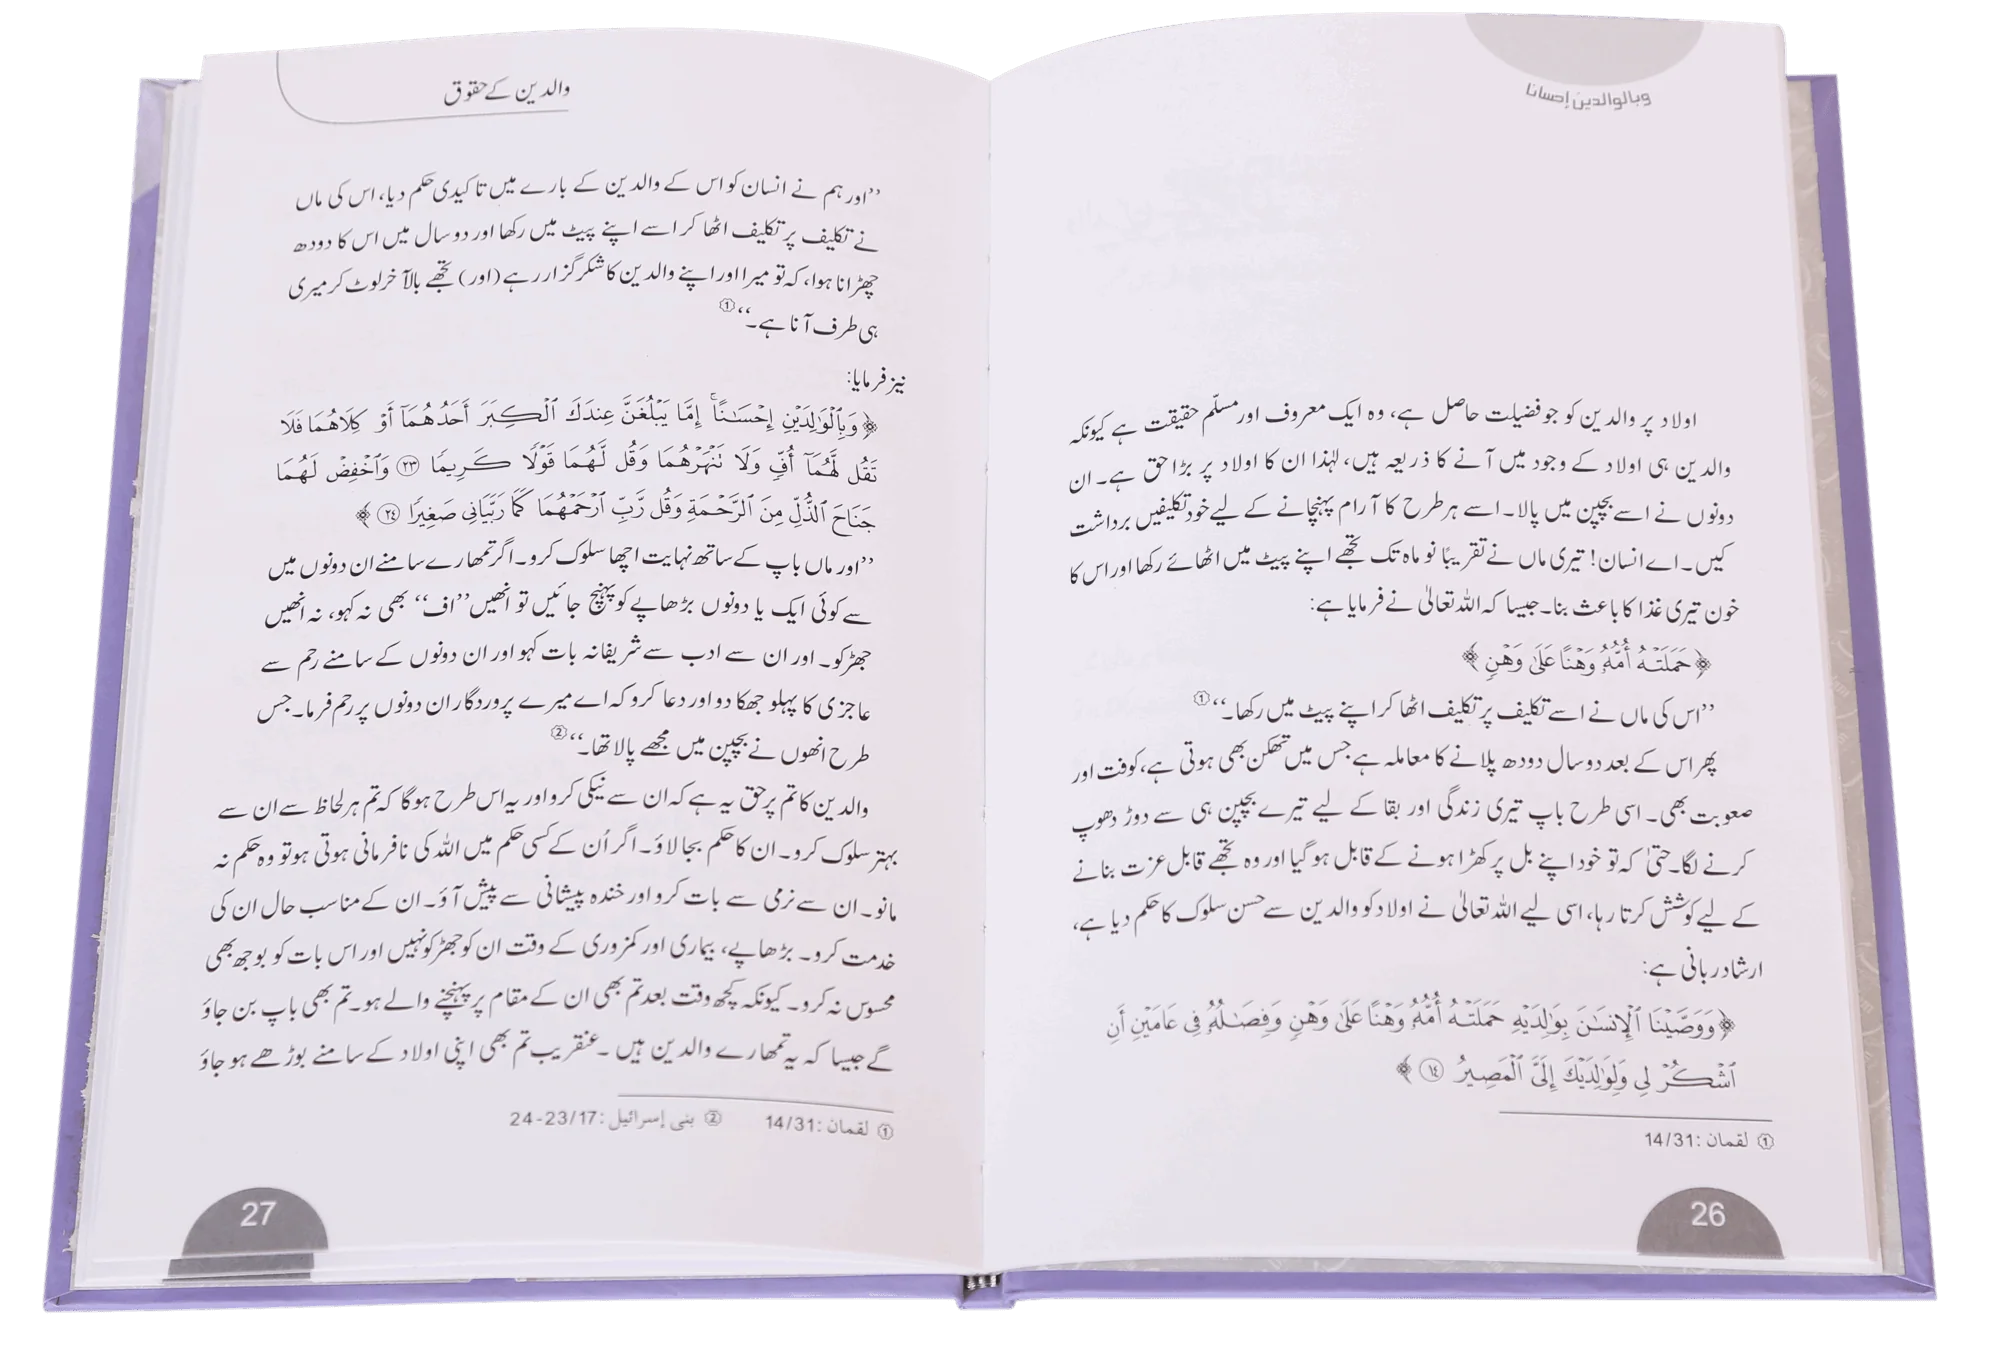 وبالوالدین إحسانا
اولاد پر والدین کو جو فضیلت حاصل ہے، وہ ایک معروف اور مسلّم حقیقت ہے کیونکہ
والدین ہی اولاد کے وجود میں آنے کا ذریعہ ہیں، لہٰذا ان کا اولاد پر بڑا حق ہے۔ ان
دونوں نے اسے بچپن میں پالا۔ اسے ہر طرح کا آرام پہنچانے کے لیے خود تکلیفیں برداشت
کیں۔ اے انسان! تیری ماں نے تقریبًا نو ماہ تک تجھے اپنے پیٹ میں اٹھائے رکھا اور اس کا
خون تیری غذا کا باعث بنا۔ جیسا کہ اللہ تعالیٰ نے فرمایا ہے:
﴿حَمَلَتْهُ أُمُّهُۥ وَهْنًا عَلَىٰ وَهْنٍ﴾
’’اس کی ماں نے اسے تکلیف پر تکلیف اٹھا کر اپنے پیٹ میں رکھا۔‘‘①
پھر اس کے بعد دو سال دودھ پلانے کا معاملہ ہے جس میں تھکن بھی ہوتی ہے، کوفت اور
صعوبت بھی۔ اسی طرح باپ تیری زندگی اور بقا کے لیے تیرے بچپن ہی سے دوڑ دھوپ
کرنے لگا۔ حتیٰ کہ تو خود اپنے بل پر کھڑا ہونے کے قابل ہو گیا اور وہ تجھے قابل عزت بنانے
کے لیے کوشش کرتا رہا، اسی لیے اللہ تعالیٰ نے اولاد کو والدین سے حسن سلوک کا حکم دیا ہے،
ارشاد ربانی ہے:
﴿وَوَصَّيْنَا ٱلْإِنسَـٰنَ بِوَٰلِدَيْهِ حَمَلَتْهُ أُمُّهُۥ وَهْنًا عَلَىٰ وَهْنٍ وَفِصَـٰلُهُۥ فِى عَامَيْنِ أَنِ
ٱشْكُرْ لِى وَلِوَٰلِدَيْكَ إِلَىَّ ٱلْمَصِيرُ ١٤﴾
① لقمان :14/31
26
والدین کے حقوق
’’اور ہم نے انسان کو اس کے والدین کے بارے میں تاکیدی حکم دیا، اس کی ماں
نے تکلیف پر تکلیف اٹھا کر اسے اپنے پیٹ میں رکھا اور دو سال میں اس کا دودھ
چھڑانا ہوا، کہ تو میرا اور اپنے والدین کا شکر گزار رہے (اور) تجھے بالآخر لوٹ کر میری
ہی طرف آنا ہے۔‘‘①
نیز فرمایا:
﴿وَبِٱلْوَٰلِدَيْنِ إِحْسَـٰنًا ۚ إِمَّا يَبْلُغَنَّ عِندَكَ ٱلْكِبَرَ أَحَدُهُمَآ أَوْ كِلَاهُمَا فَلَا
تَقُل لَّهُمَآ أُفٍّ وَلَا تَنْهَرْهُمَا وَقُل لَّهُمَا قَوْلًا كَرِيمًا ٢٣ وَٱخْفِضْ لَهُمَا
جَنَاحَ ٱلذُّلِّ مِنَ ٱلرَّحْمَةِ وَقُل رَّبِّ ٱرْحَمْهُمَا كَمَا رَبَّيَانِى صَغِيرًا ٢٤﴾
’’اور ماں باپ کے ساتھ نہایت اچھا سلوک کرو۔ اگر تمھارے سامنے ان دونوں میں
سے کوئی ایک یا دونوں بڑھاپے کو پہنچ جائیں تو انھیں ’’اف‘‘ بھی نہ کہو، نہ انھیں
جھڑکو۔ اور ان سے ادب سے شریفانہ بات کہو اور ان دونوں کے سامنے رحم سے
عاجزی کا پہلو جھکا دو اور دعا کرو کہ اے میرے پروردگار ان دونوں پر رحم فرما۔ جس
طرح انھوں نے بچپن میں مجھے پالا تھا۔‘‘②
والدین کا تم پر حق یہ ہے کہ ان سے نیکی کرو اور یہ اس طرح ہوگا کہ تم ہر لحاظ سے ان سے
بہتر سلوک کرو۔ ان کا حکم بجا لاؤ۔ اگر اُن کے کسی حکم میں اللہ کی نافرمانی ہوتی ہو تو وہ حکم نہ
مانو۔ ان سے نرمی سے بات کرو اور خندہ پیشانی سے پیش آؤ۔ ان کے مناسب حال ان کی
خدمت کرو۔ بڑھاپے، بیماری اور کمزوری کے وقت ان کو جھڑکو نہیں اور اس بات کو بوجھ بھی
محسوس نہ کرو۔ کیونکہ کچھ وقت بعد تم بھی ان کے مقام پر پہنچنے والے ہو۔ تم بھی باپ بن جاؤ
گے جیسا کہ یہ تمھارے والدین ہیں۔ عنقریب تم بھی اپنی اولاد کے سامنے بوڑھے ہو جاؤ
① لقمان :14/31 ② بنی إسرائیل :17/23-24
27